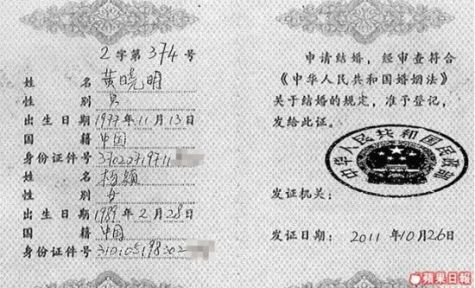 2字第374号
姓名 黄晓明
性别 男
出生日期 1977年11月13日
国籍 中国
身份证件号
姓名 杨颖
性别 女
出生日期 1989年2月28日
国籍 中国
身份证件号
申请结婚,经审查符合
《中华人民共和国婚姻法》
关于结婚的规定,准予登记,
发给此证。
中华人民共和国民政部
发证机关:
发证日期: 2011年10月26日
蘋果日報